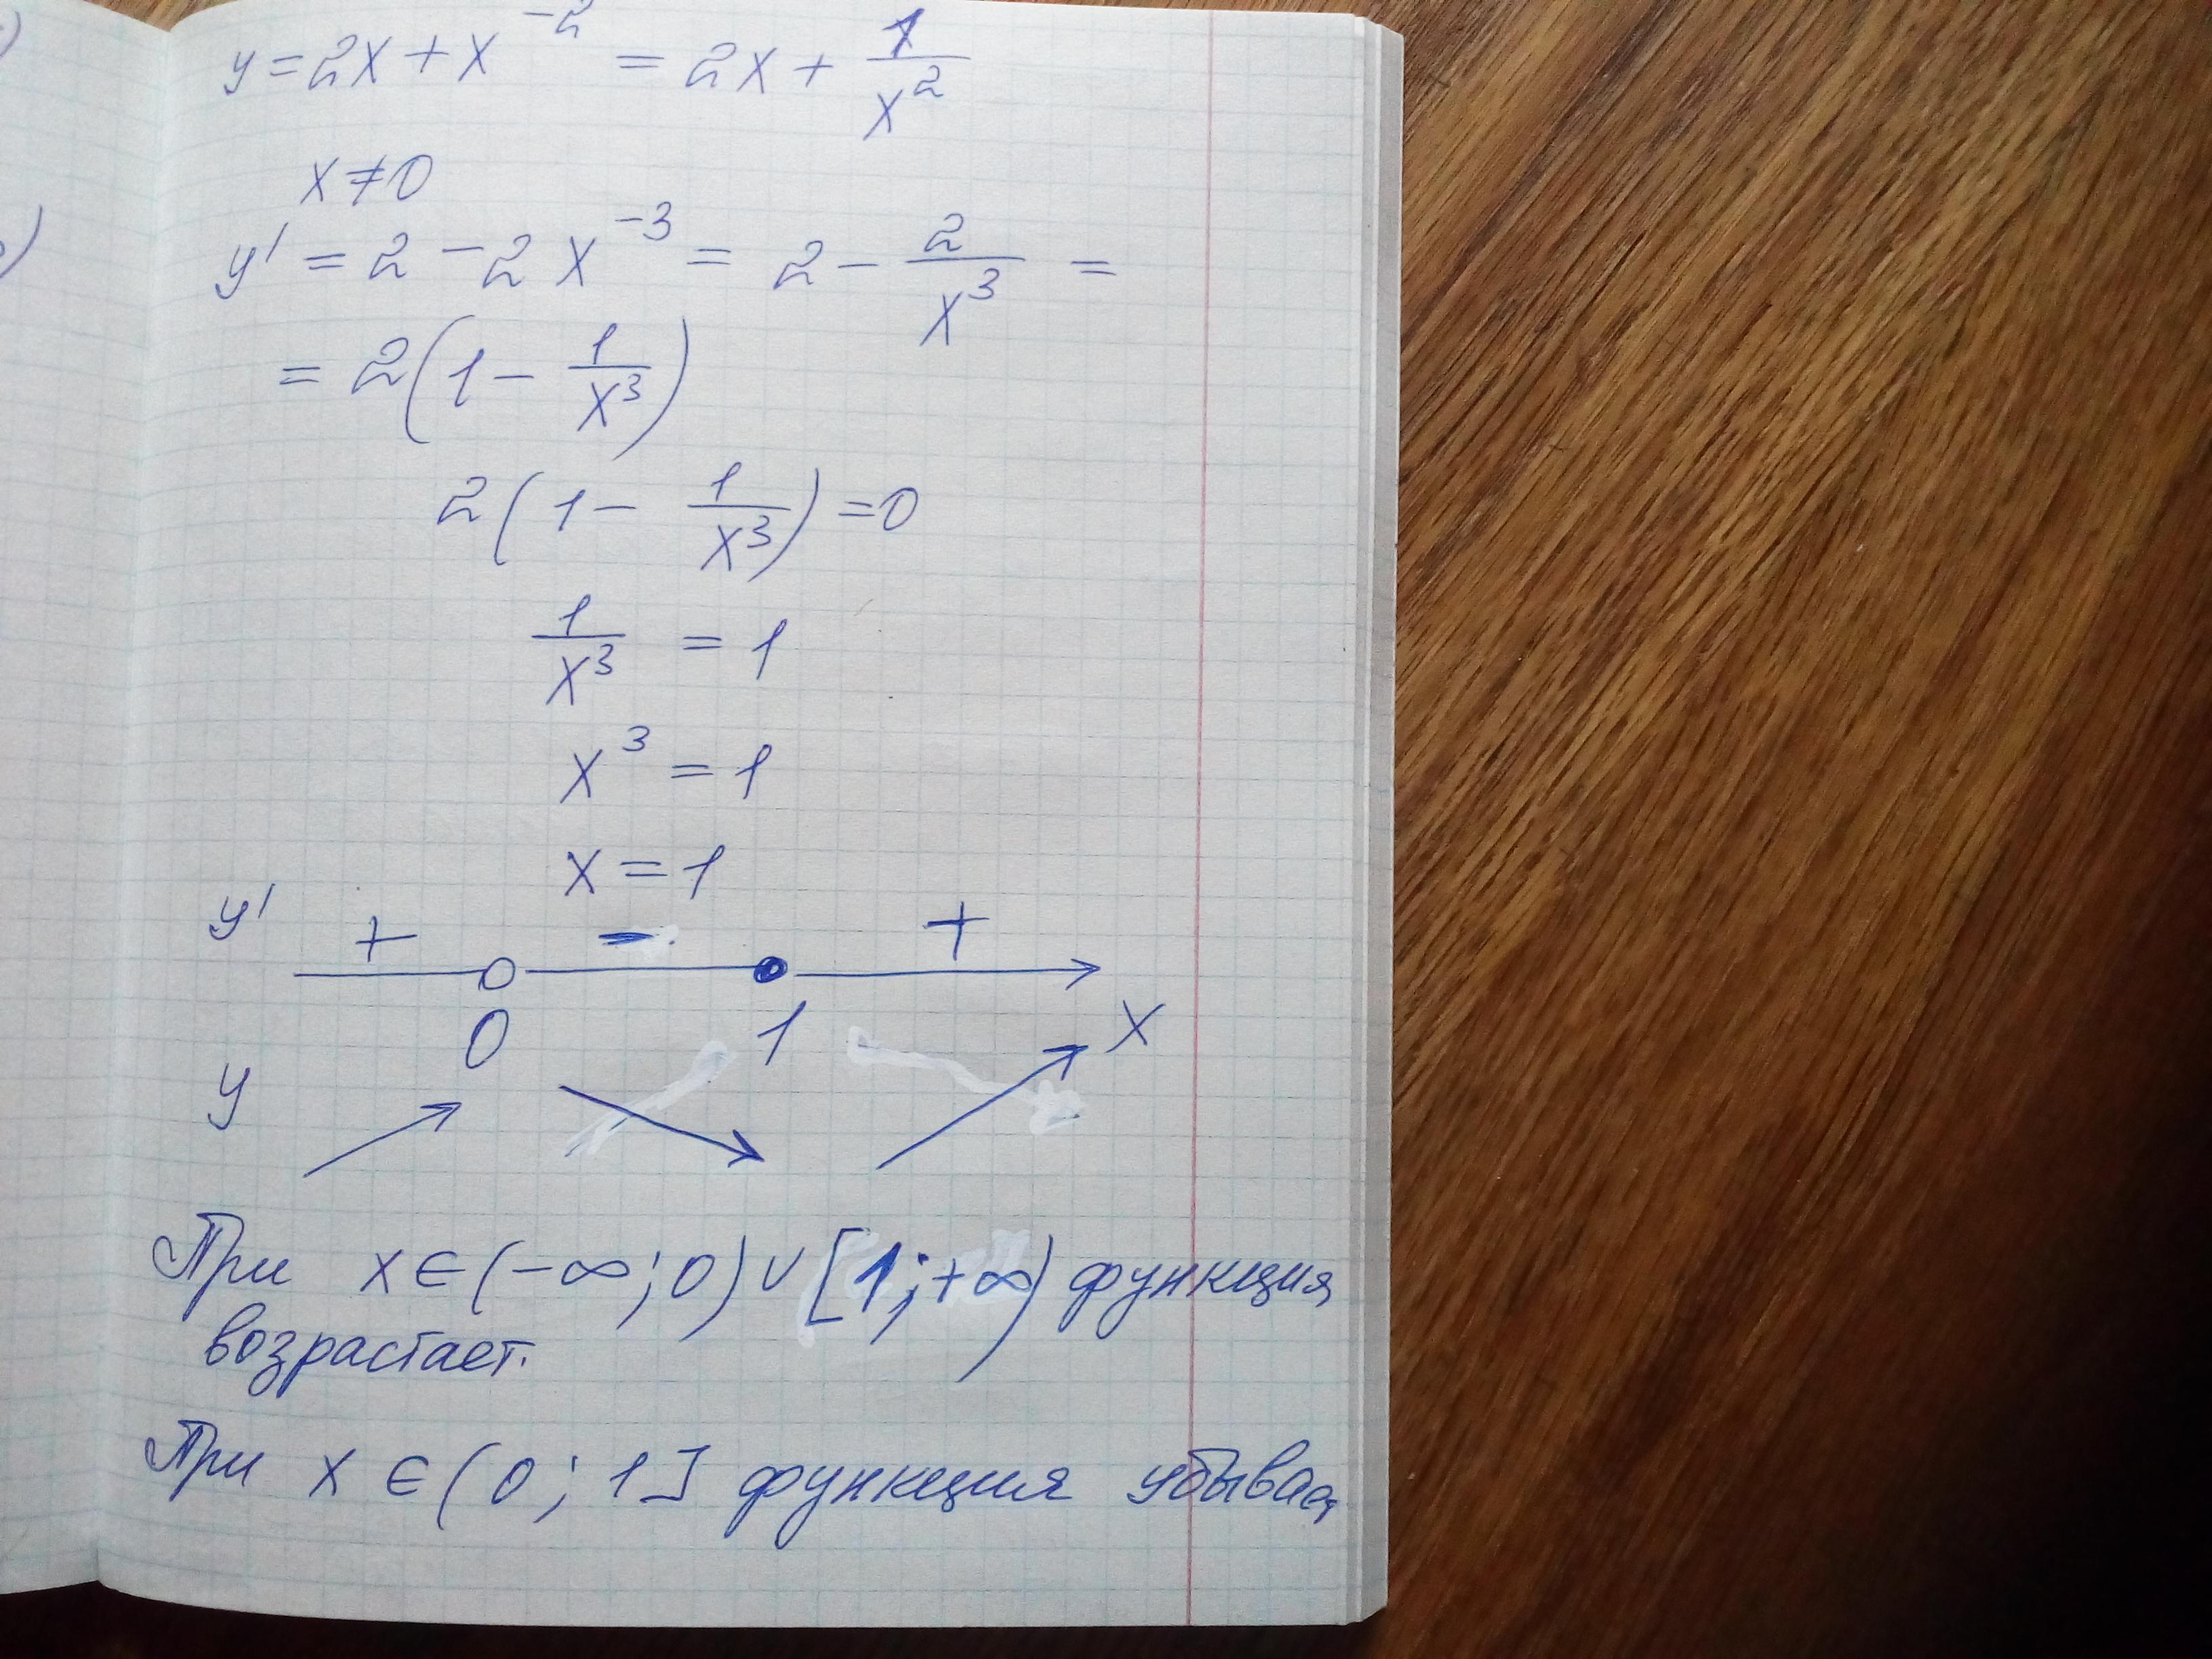 y = 2x + x⁻² = 2x + 1/x²
x ≠ 0
y' = 2 - 2x⁻³ = 2 - 2/x³ =
= 2(1 - 1/x³)
2(1 - 1/x³) = 0
1/x³ = 1
x³ = 1
x = 1
y' + - +
0 1 x
y
При x ∈ (-∞; 0) ∪ [1; +∞) функция
возрастает.
При x ∈ (0; 1] функция убывает